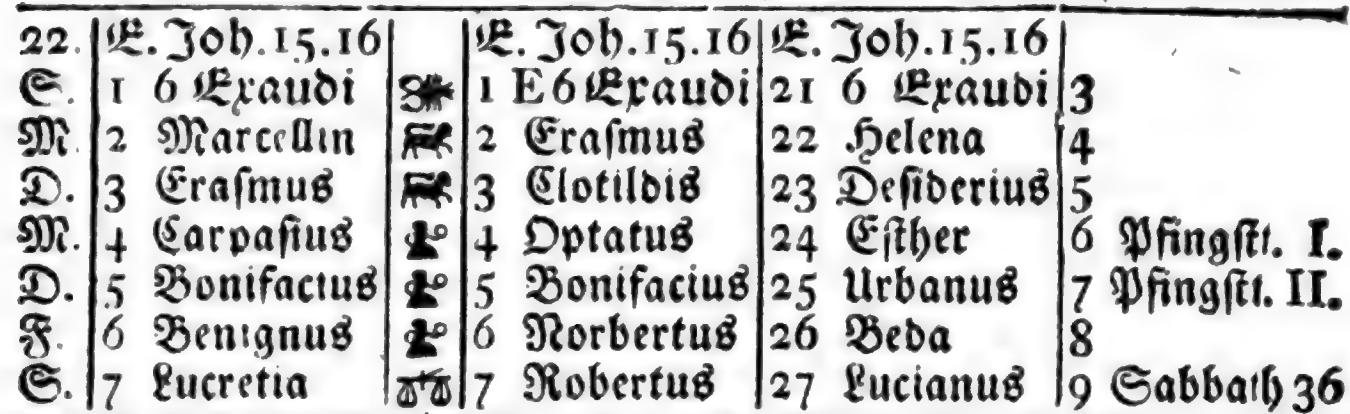 22. E. Joh. 15.16 E. Joh. 15.16 E. Joh. 15.16
S. 1 6 Exaudi 1 E 6 Exaudi 21 6 Exaudi 3
M. 2 Marcellin 2 Eraſmus 22 Helena 4
D. 3 Eraſmus 3 Clotildis 23 Deſiderius 5
M. 4 Carpaſius 4 Optatus 24 Eſther 6 Pfingſtt. I.
D. 5 Bonifacius 5 Bonifacius 25 Urbanus 7 Pfingſtt. II.
F. 6 Benignus 6 Norbertus 26 Beda 8
S. 7 Lucretia 7 Robertus 27 Lucianus 9 Sabbath 36